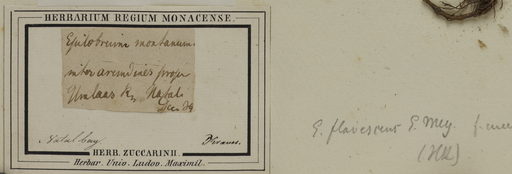 HERBARIUM REGIUM MONACENSE.
Epilobium montanum
inter arundines prope
Umlaas R, Natal
Dec 39
Natal bay Krauss.
HERB. ZUCCARINII.
Herbar. Univ. Ludov. Maximil.
E. flavescens E. Mey.